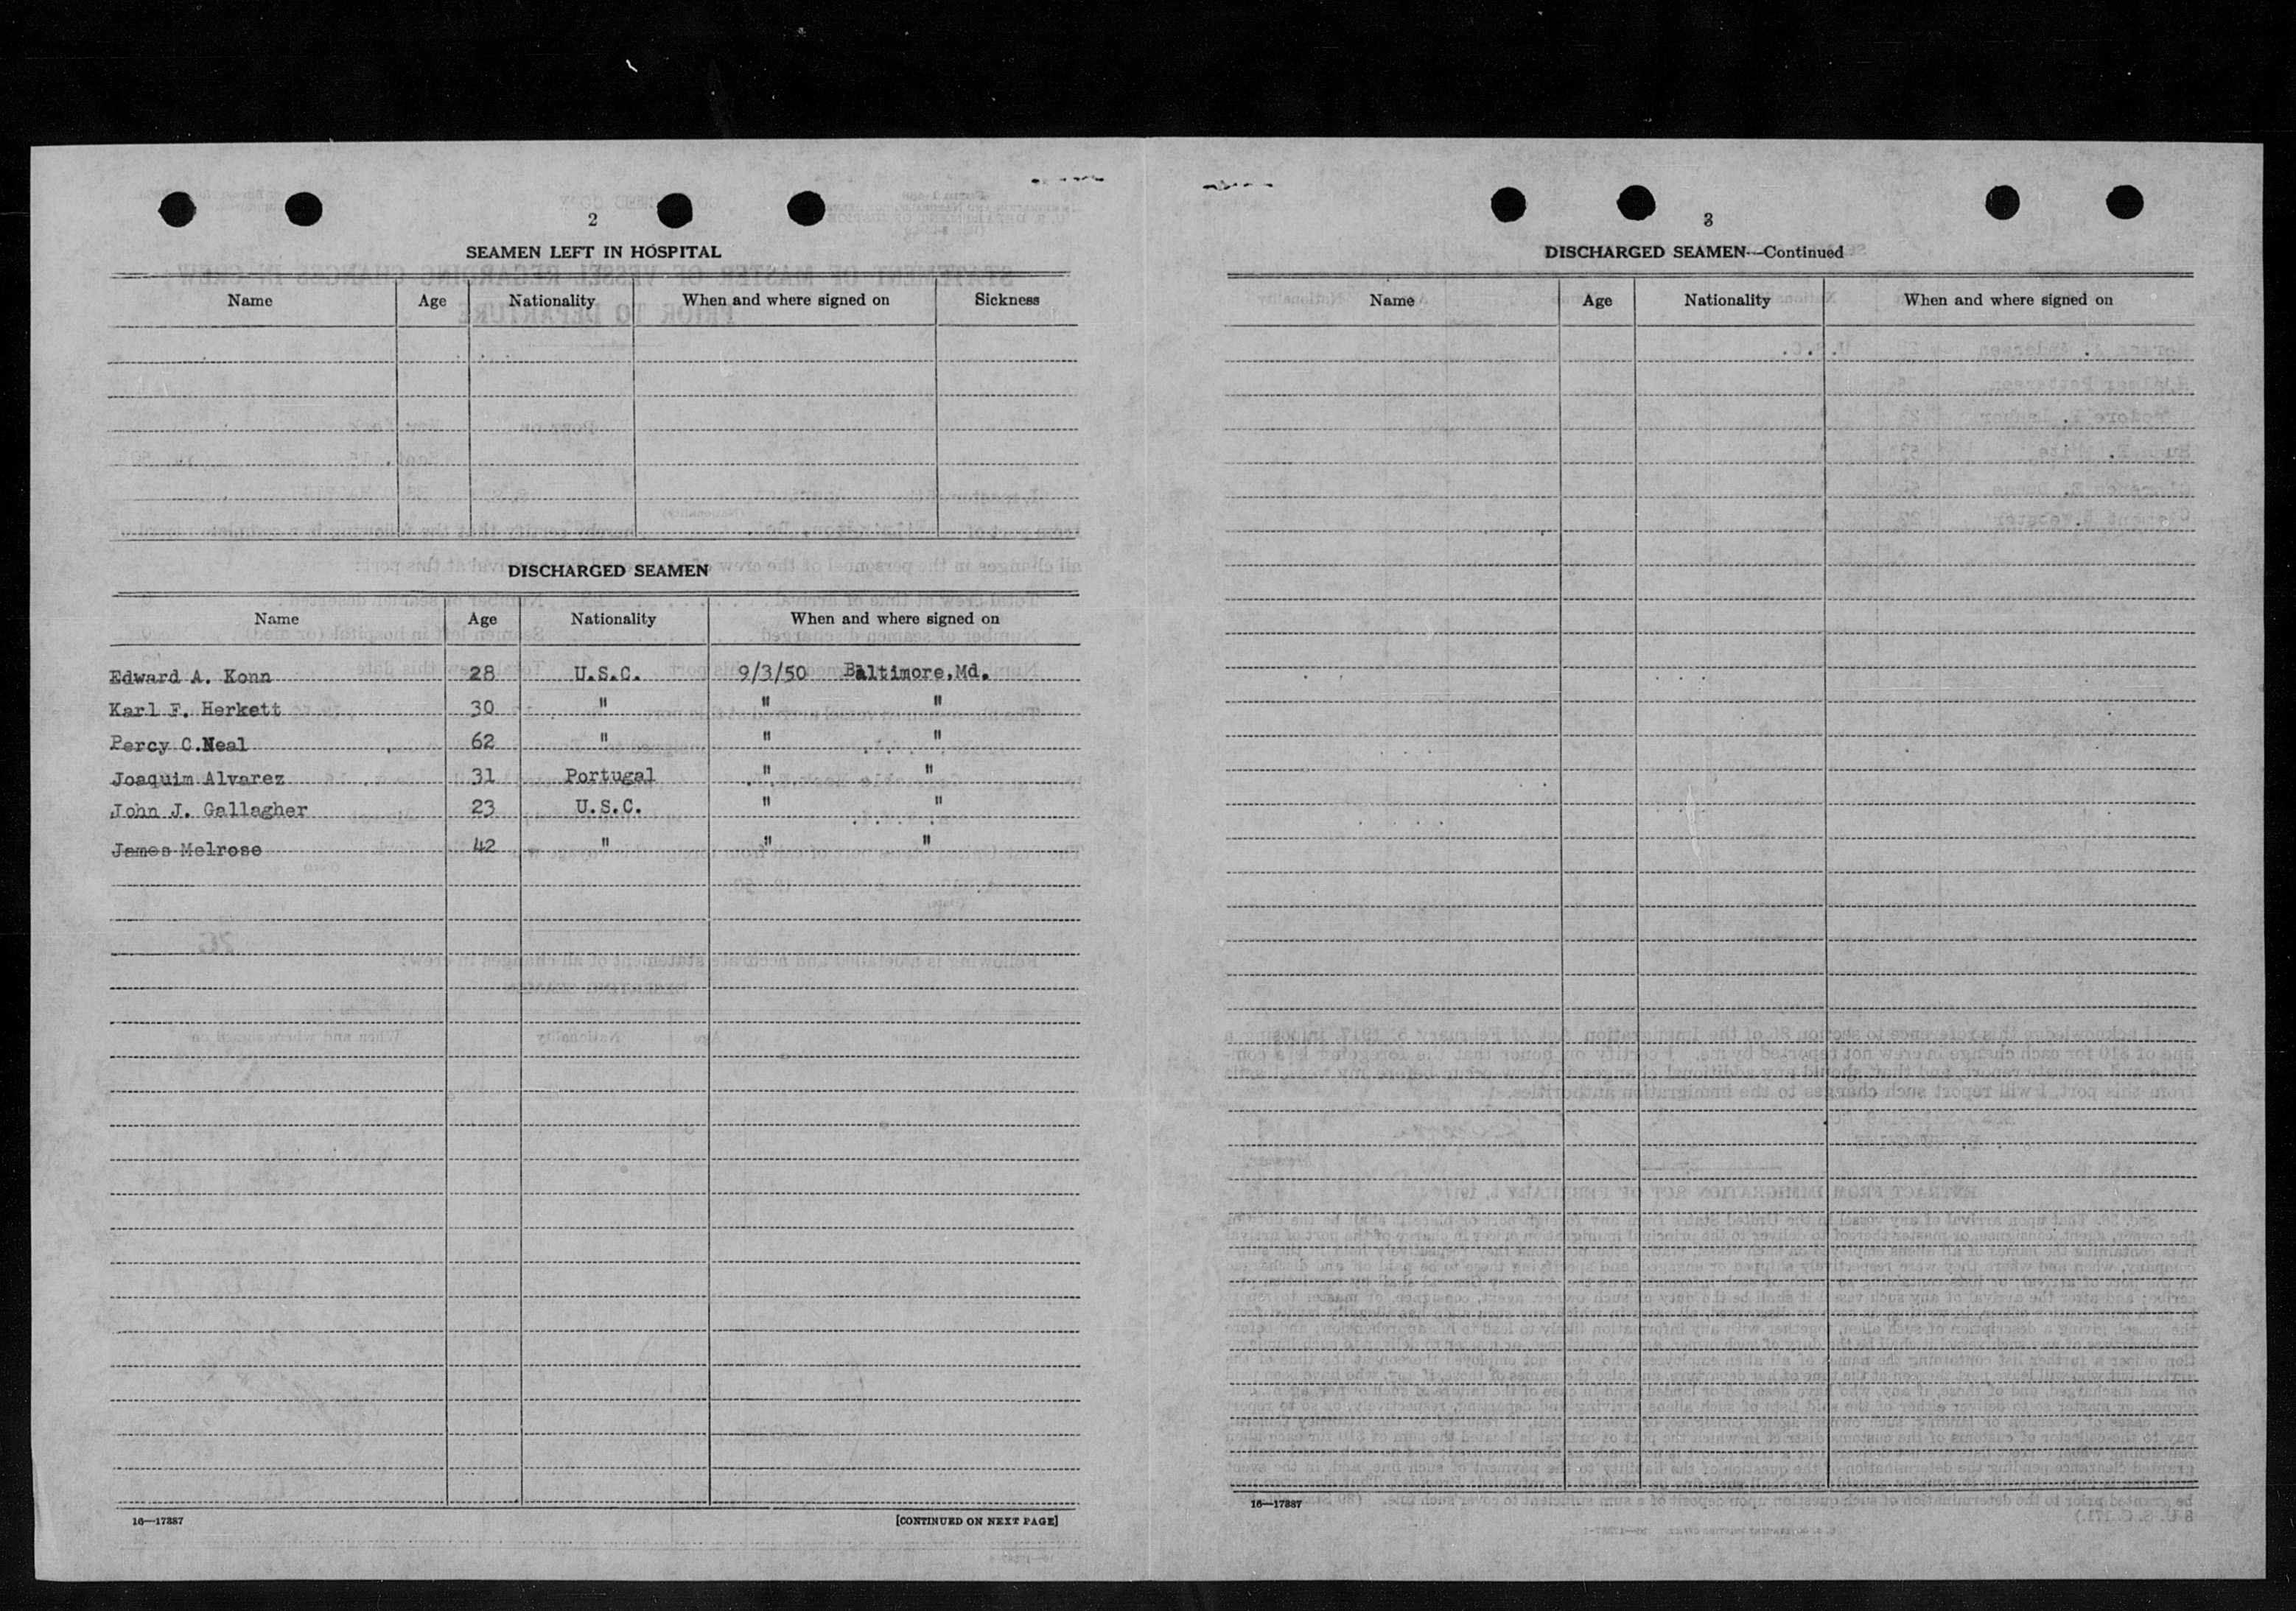 2
SEAMEN LEFT IN HOSPITAL
Name Age Nationality When and where signed on Sickness
DISCHARGED SEAMEN
Name Age Nationality When and where signed on
Edward A. Konn 28 U.S.C. 9/3/50 Baltimore,Md.
Karl F. Herkett 30 " " "
Percy C.Neal 62 " " "
Joaquim Alvarez 31 Portugal " "
John J. Gallagher 23 U.S.C. " "
James Melrose 42 " " "
16—17387
[CONTINUED ON NEXT PAGE]
3
DISCHARGED SEAMEN—Continued
Name Age Nationality When and where signed on
16—17387